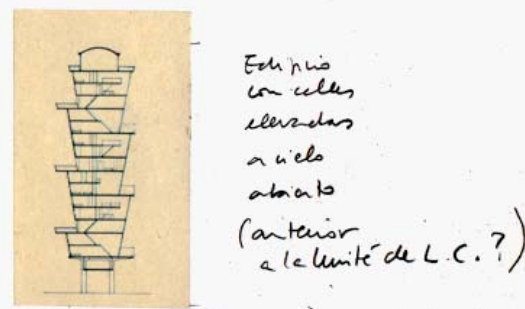 Edificio
con calles
elevadas
a cielo
abierto
(anterior
a la Unité de L.C.?)